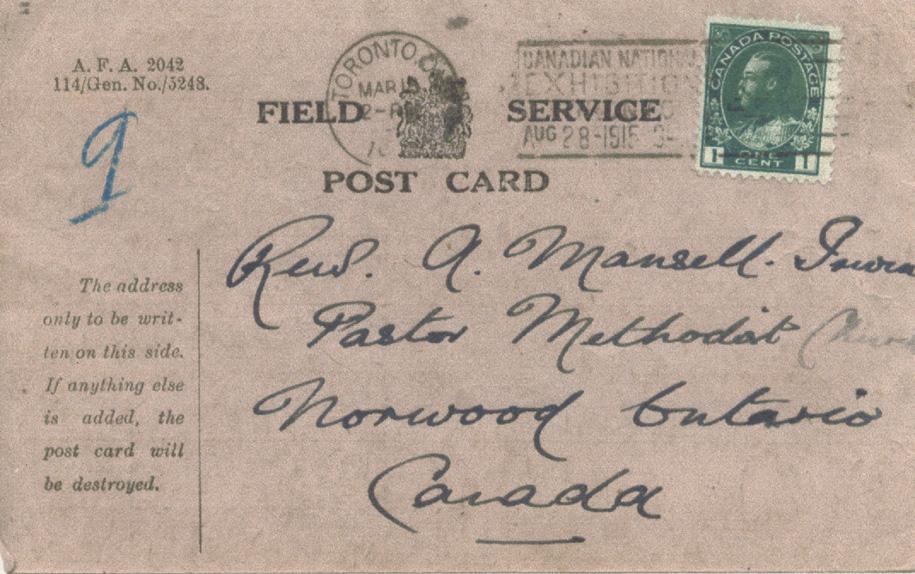 A. F. A. 2042
114/Gen. No./5248.
9
TORONTO, O
MAR
CANADIAN NATIONA
EXHIBITION
AUG 28-1915
CANADA POSTAGE
1 ONE CENT 1
FIELD SERVICE
POST CARD
The address
only to be writ-
ten on this side.
If anything else
is added, the
post card will
be destroyed.
Rev. A. Mansell.
Pastor Methodist
Norwood Ontario
Canada